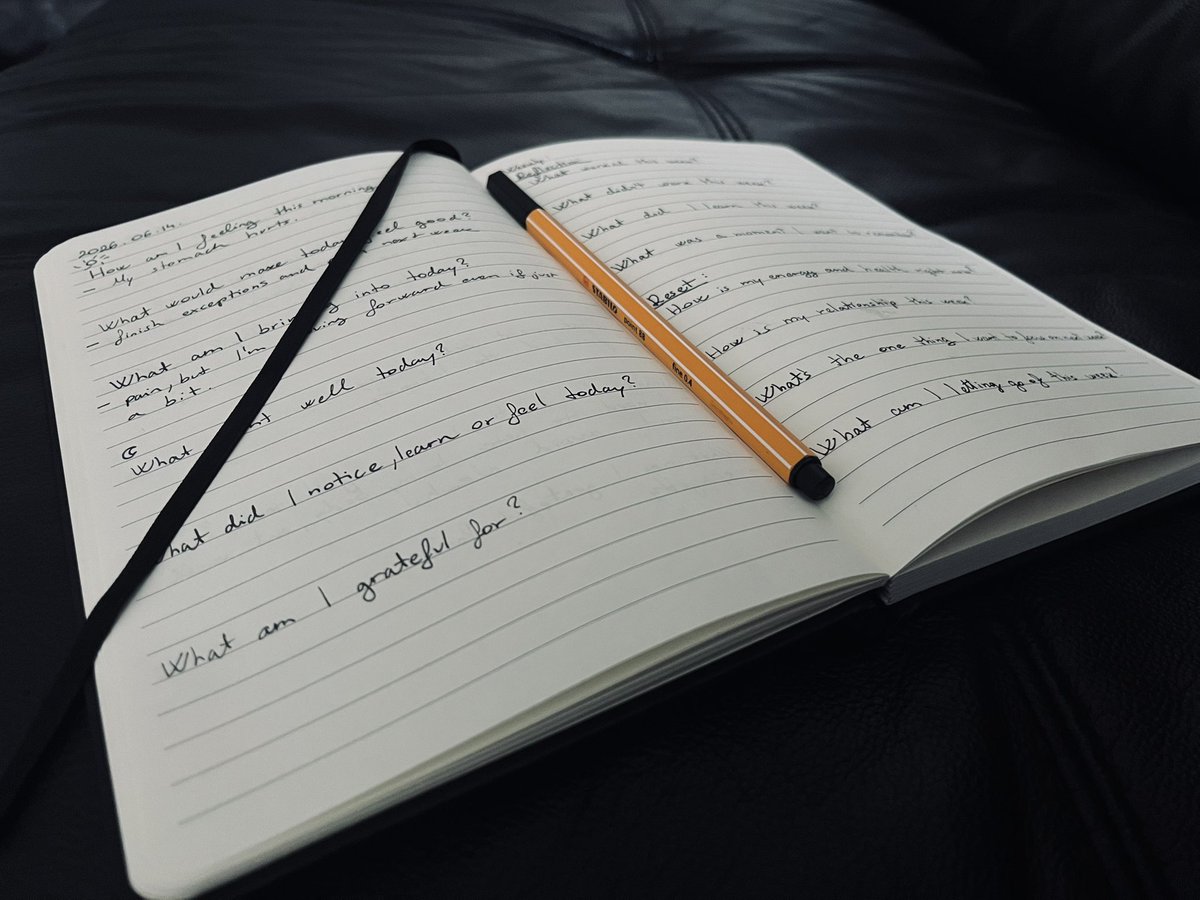 2026.06.14.
How am I feeling this morning
- My stomach hurts.
What would make today feel good?
- finish exceptions and next week
What am I bringing into today?
- pain, but I'm moving forward even if just
a bit.
What went well today?
What did I notice, learn or feel today?
What am I grateful for?
Weekly
Reflection
What worked this week?
What didn't work this week?
What did I learn this week?
What was a moment I want to remember?
Reset:
How is my energy and health right now?
How is my relationship this week?
What's the one thing I want to focus on next week?
What am I letting go of this week?
STABILO point 88 fine 0.4